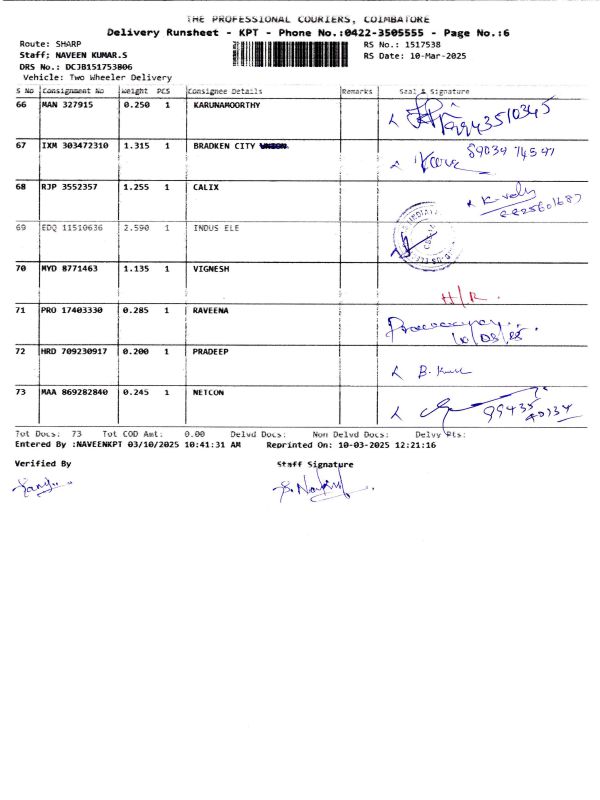 THE PROFESSIONAL COURIERS, COIMBATORE
Delivery Runsheet - KPT - Phone No.:0422-3505555 - Page No.:6
Route: SHARP RS No.: 1517538
Staff; NAVEEN KUMAR.S RS Date: 10-Mar-2025
DRS No.: DCJB151753806
Vehicle: Two Wheeler Delivery
S No Consignment No Weight PCS Consignee Details Remarks Seal & Signature
66 MAN 327915 0.250 1 KARUNAMOORTHY
67 IXM 303472310 1.315 1 BRADKEN CITY
68 RJP 3552357 1.255 1 CALIX
69 EDQ 11510636 2.590 1 INDUS ELE
70 MYD 8771463 1.135 1 VIGNESH H/R.
71 PRO 17403330 0.285 1 RAVEENA
72 HRD 709230917 0.200 1 PRADEEP
73 MAA 869282840 0.245 1 NETCON
Tot Docs: 73 Tot COD Amt: 0.00 Delvd Docs: Non Delvd Docs: Delvy Pts:
Entered By :NAVEENKPT 03/10/2025 10:41:31 AM Reprinted On: 10-03-2025 12:21:16
Verified By Staff Signature